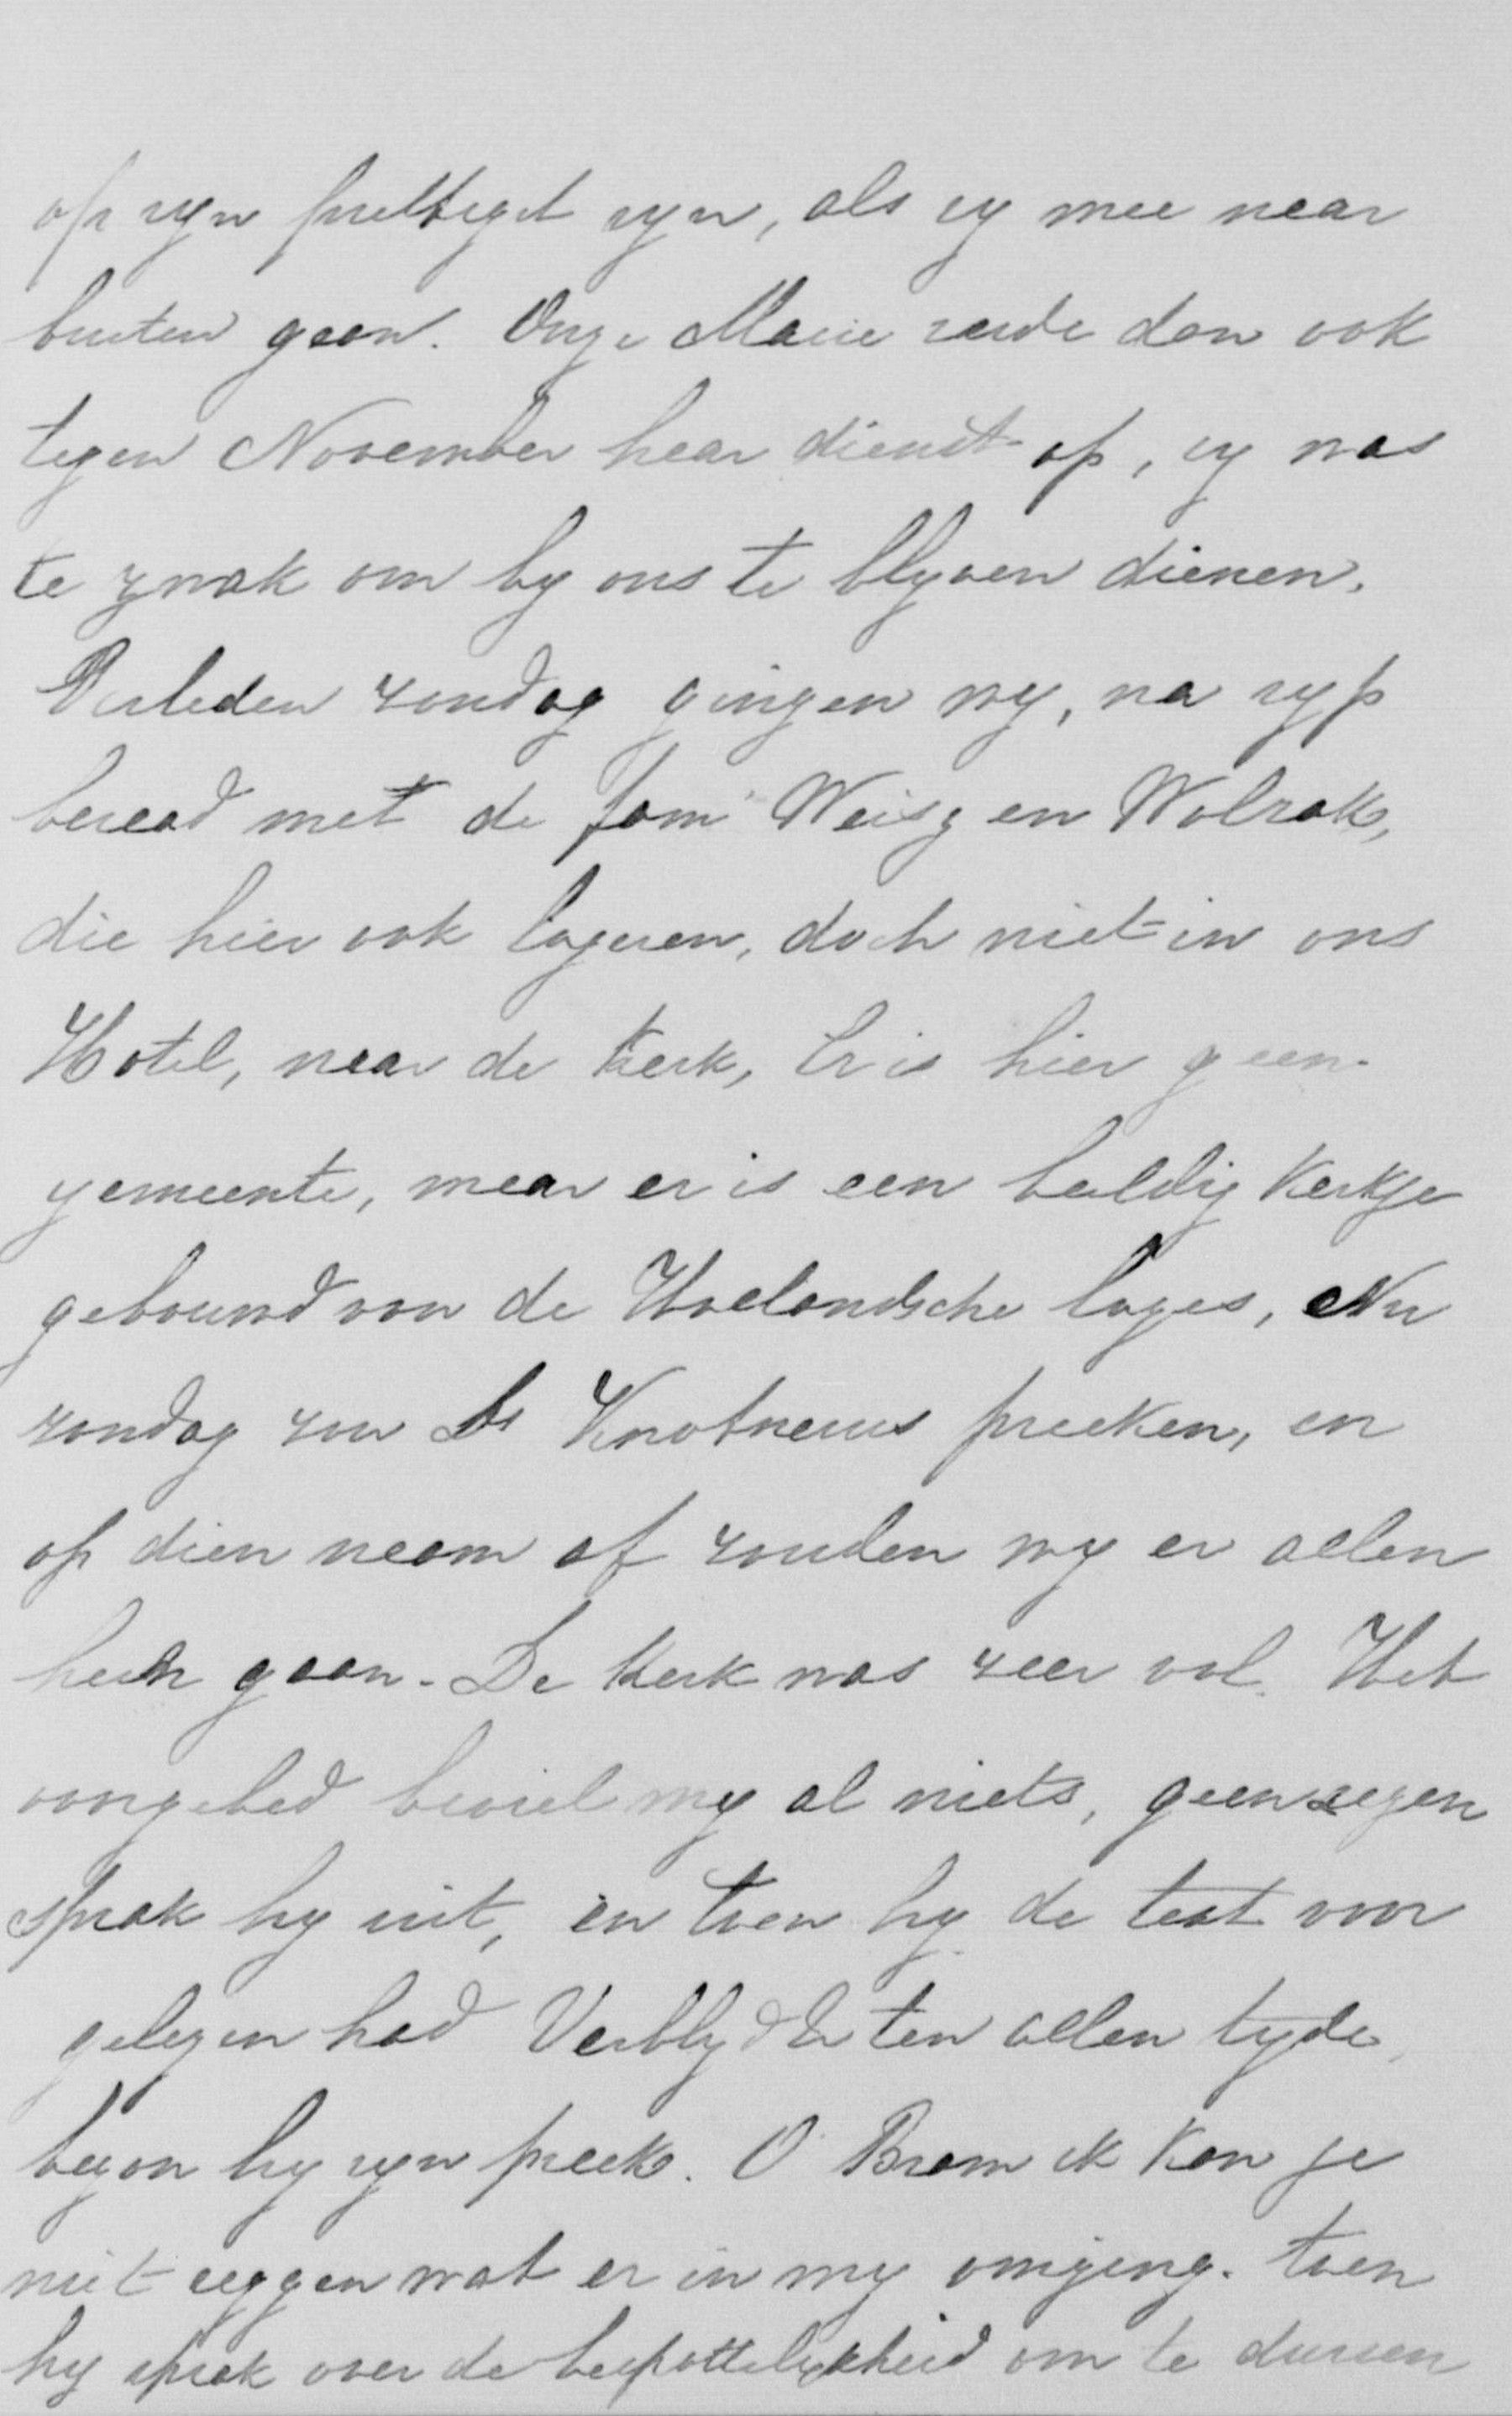 op zyn prettigst zyn, als zy mee naar
buiten gaan. Onze Marie zeide dan ook
tegen November haar dienst op, zy was
te zwak om by ons te blyven dienen.
Verleden zondag gingen wy, na ryp
beraad met de fam Weisz en Wolrak,
die hier ook logeren, doch niet in ons
Hotel, naar de Kerk, Er is hier geen
gemeente, maar er is een beeldig Kerkje
gebouwd van de Hollandsche loges, Nu
zondag zou Ds Knotnerus preeken, en
op dien naam af zouden wy er allen
heen gaan. De Kerk was zeer vol. Het
voorgebed beviel my al niets, geen zegen
sprak hy uit, en toen hy de text voor
gelezen had Verblyd U ten allen tyde,
begon hy zyn preek. O Bram ik kan je
niet zeggen wat er in my omging. toen
hy sprak over de bespottelykheid om te durven